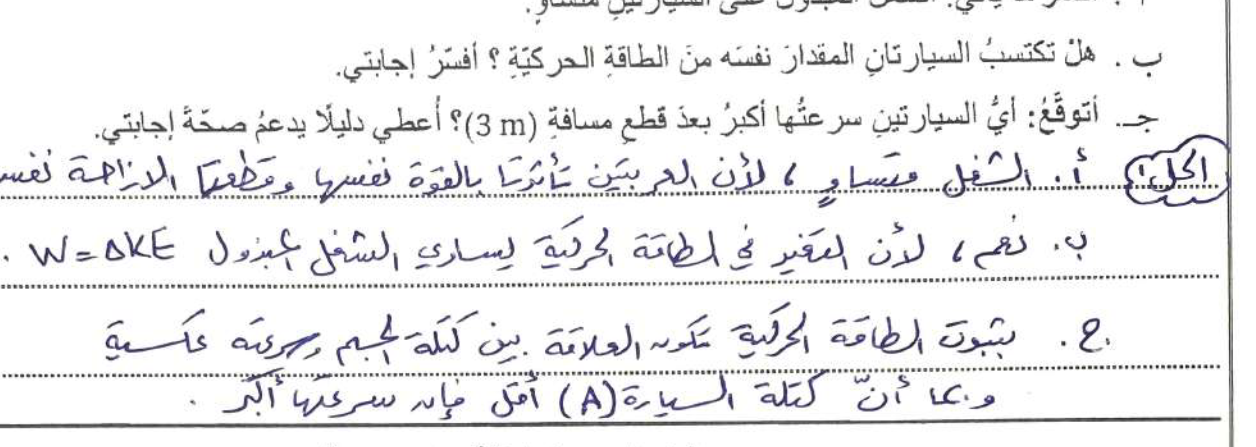 ب . هلْ تكتسبُ السيارتانِ المقدارَ نفسَه منَ الطاقةِ الحركيّةِ ؟ أفسّرُ إجابتي.
جـ. أتوقَّعُ: أيُّ السيارتينِ سرعتُها أكبرُ بعدَ قطعِ مسافةِ (3 m)؟ أعطي دليلًا يدعمُ صحّةَ إجابتي.
الحل: أ. الشغل متساوٍ ، لأن العربتين تأثرتا بالقوة نفسها وقطعتا الازاحة نفس
ب. نعم ، لأن التغير في الطاقة الحركية يساوي الشغل المبذول W = ΔKE .
ج. بثبوت الطاقة الحركية تكون العلاقة بين كتلة الجسم وسرعته عكسية
وبما أنّ كتلة السيارة (A) أقل فإن سرعتها أكبر .